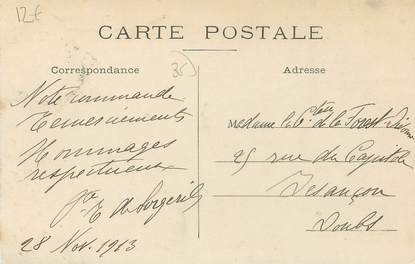 12€
CARTE POSTALE
Correspondance
35
Adresse
Note commande
Remerciements
Hommages
respectueux
E de
28 Nov. 1913
Madame la Ctesse de la Forest Divonne
25 rue du Capitole
Besançon
Doubs